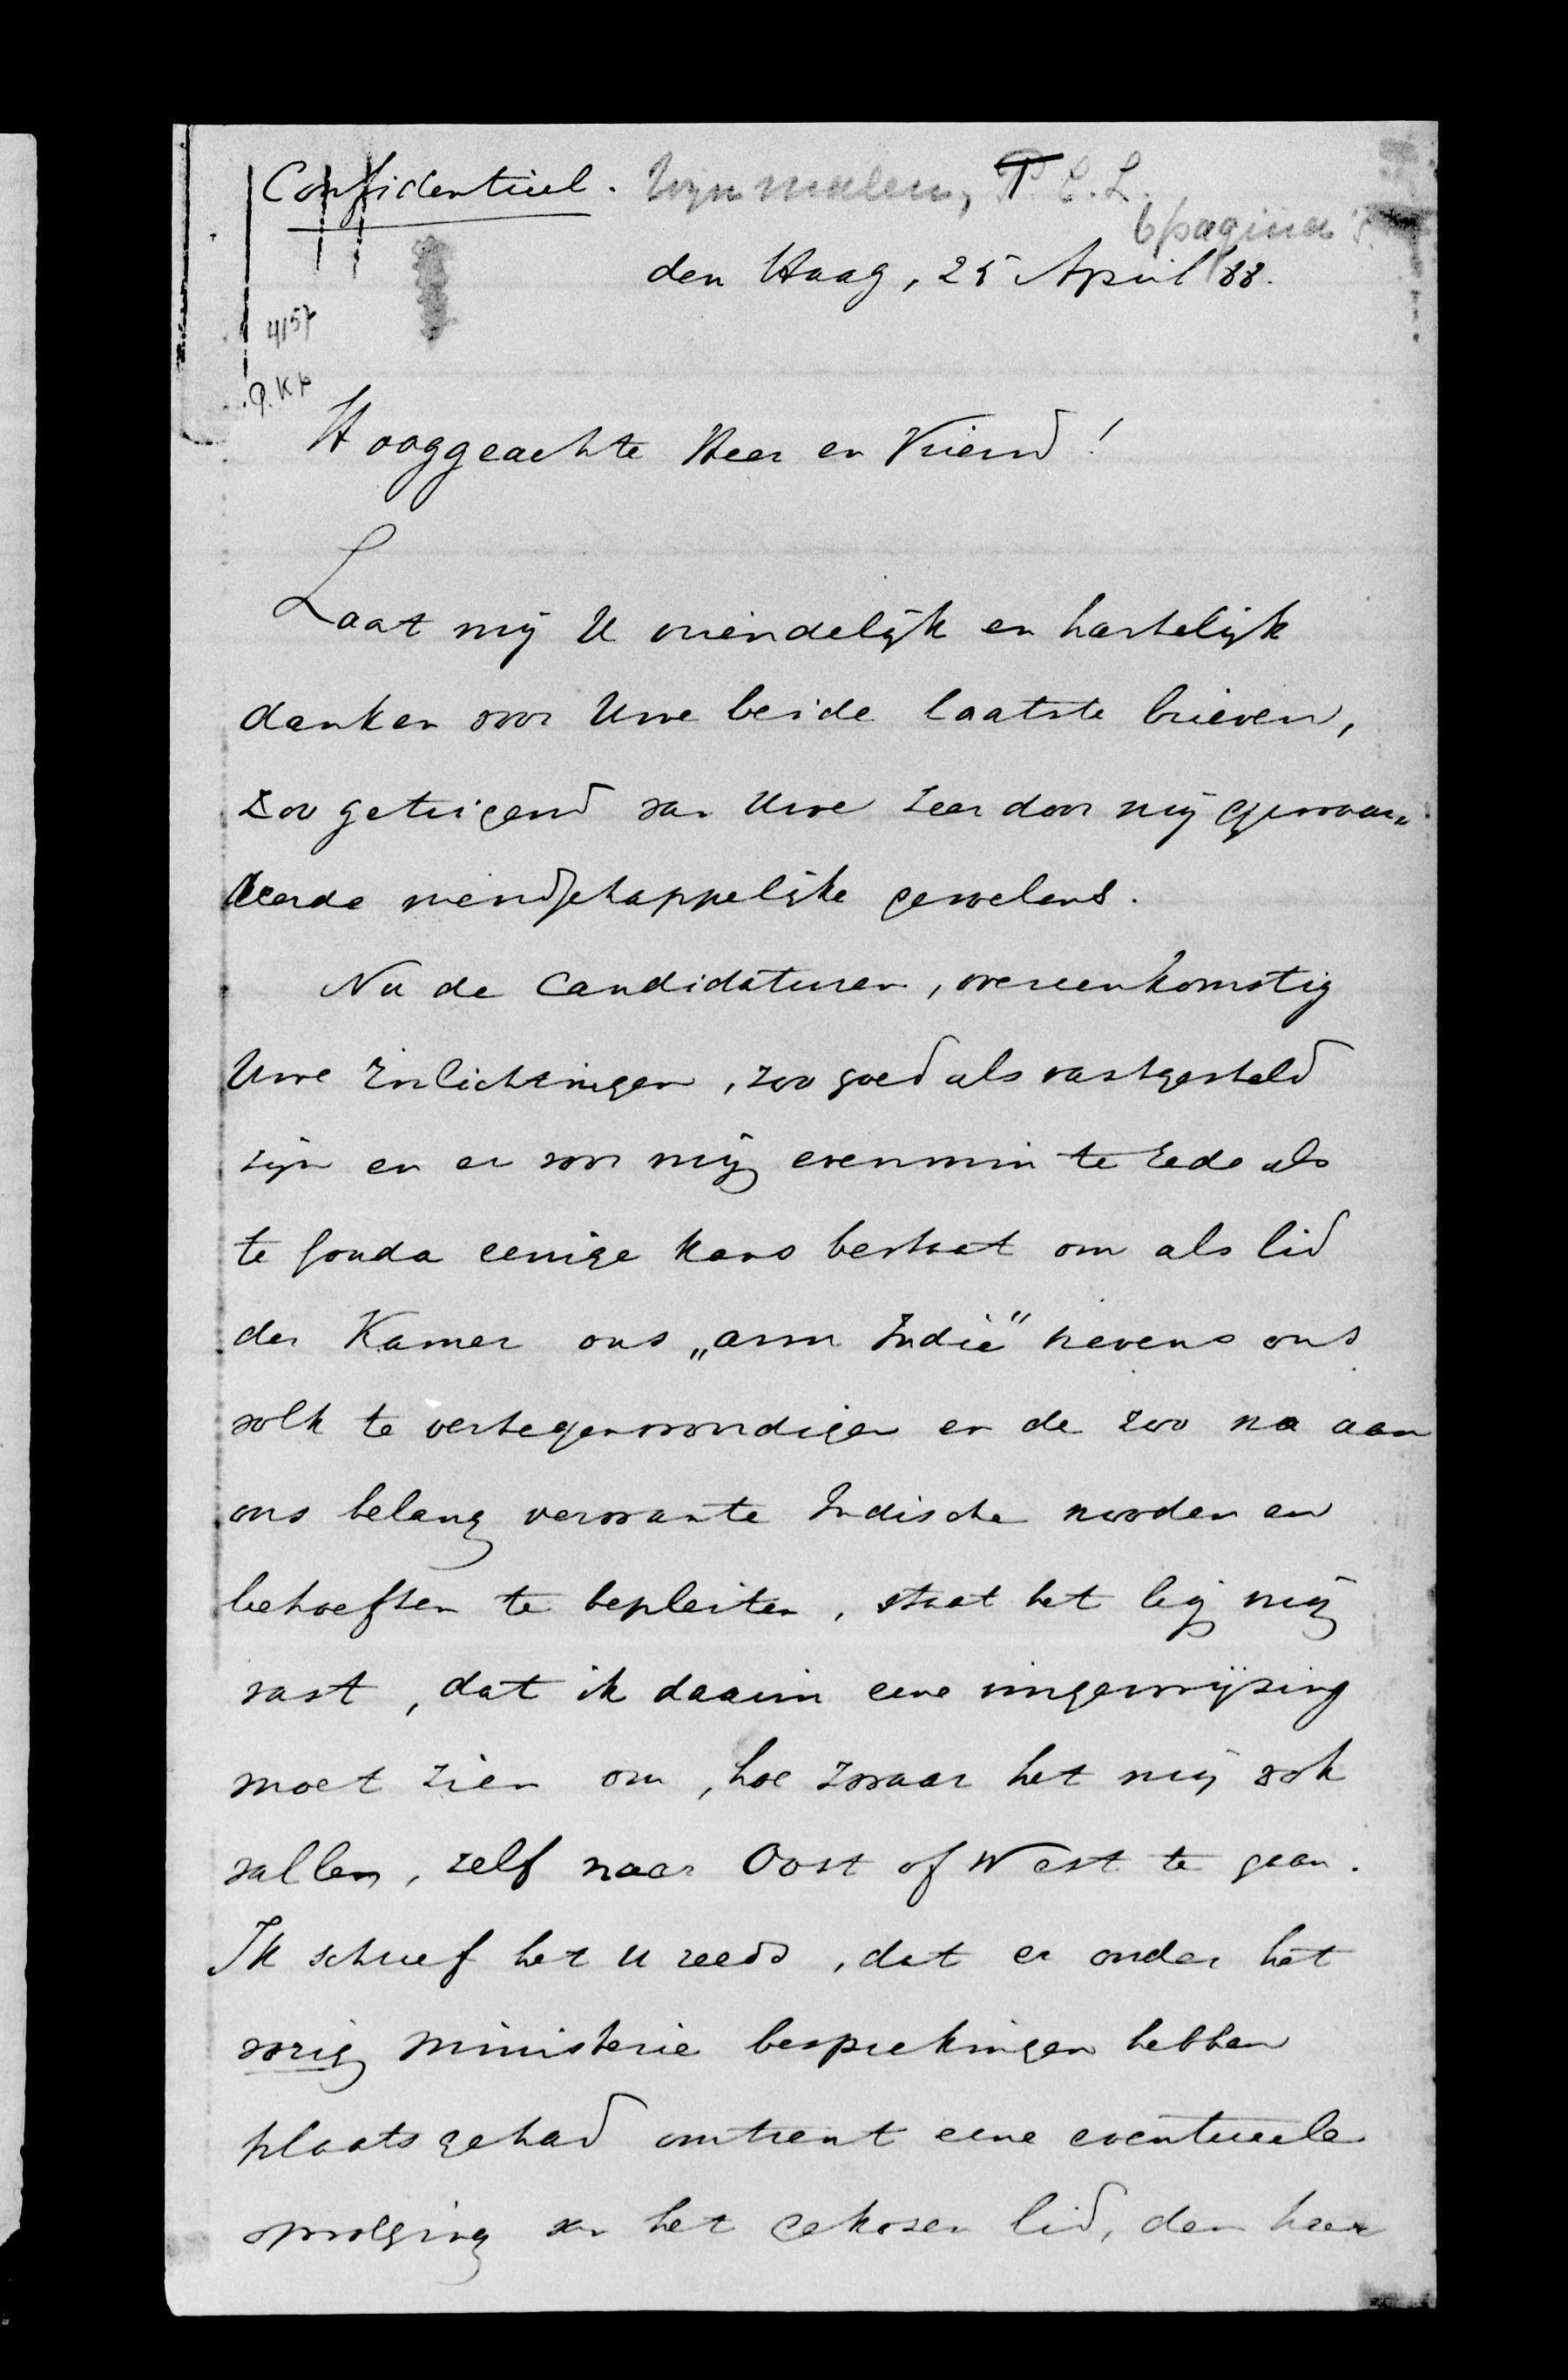 Confidentieel. Wynmalen, T. C. L.
6 pagina's.
den Haag, 25 April 88.
4157
P. Kp
Hooggeachte Heer en Vriend!
Laat mij U vriendelijk en hartelijk
danken voor Uwe beide laatste brieven,
zoo getuigend van Uwe zeer door mij gewaar„
deerde vriendschappelijke gevoelens.
Nu de Candidaturen, overeenkomstig
Uwe Inlichtingen, zoo goed als vastgesteld
zijn en er voor mij evenmin te Ede als
te Gouda eenige kans bestaat om als lid
der Kamer ons „arm Indië" nevens ons
volk te vertegenwoordigen en de zoo na aan
ons belang verwante Indische nooden en
behoeften te bepleiten, staat het bij mij
vast, dat ik daarin eene vingerwijzing
moet zien om, hoe zwaar het mij ook
vallen, zelf naar Oost of West te gaan.
Ik schreef het U reeds, dat er onder het
vorig Ministerie besprekingen hebben
plaats gehad omtrent eene eventueele
opvolging van het gekozen lid, den heer